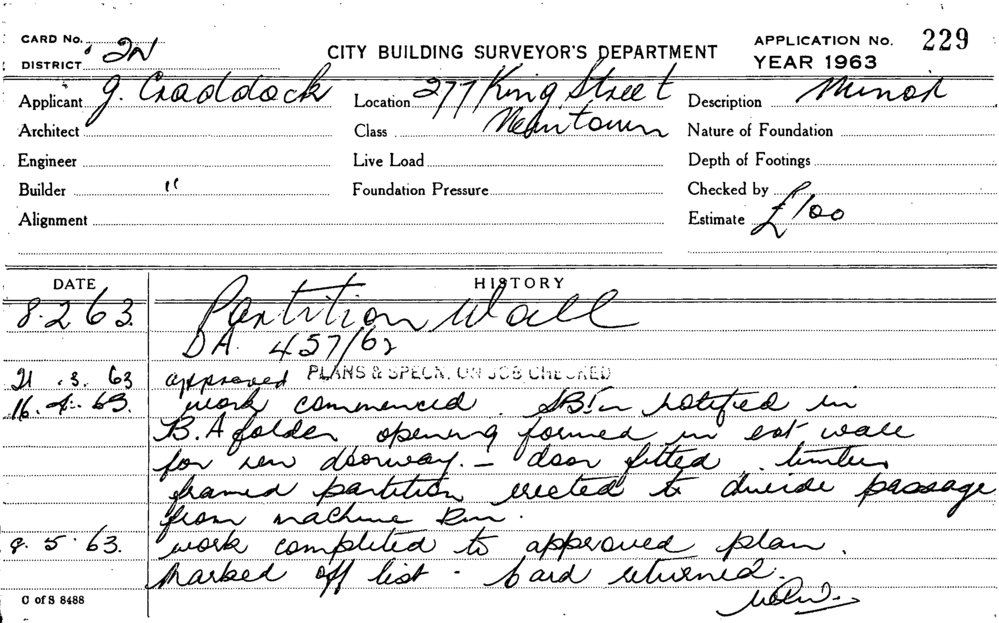 CARD No.
DISTRICT 2N
CITY BUILDING SURVEYOR'S DEPARTMENT
APPLICATION No. 229
YEAR 1963
Applicant J. Craddock
Location 277 King Street
Newtown
Description Minor
Architect
Class
Nature of Foundation
Engineer
Live Load
Depth of Footings
Builder "
Foundation Pressure
Checked by
Alignment
Estimate £100
DATE HISTORY
8.2.63. Partition Wall
DA. 457/62
21.3.63 approved PLANS & SPECN. ON JOB CHECKED
16.4.63. work commenced. notified in
B.A folder opening formed in ext wall
for new doorway. – door fitted. timber
framed partition erected to divide passage
from machine Rm.
8.5.63. work completed to approved plan.
Marked off list - Card returned.
C of S 8488